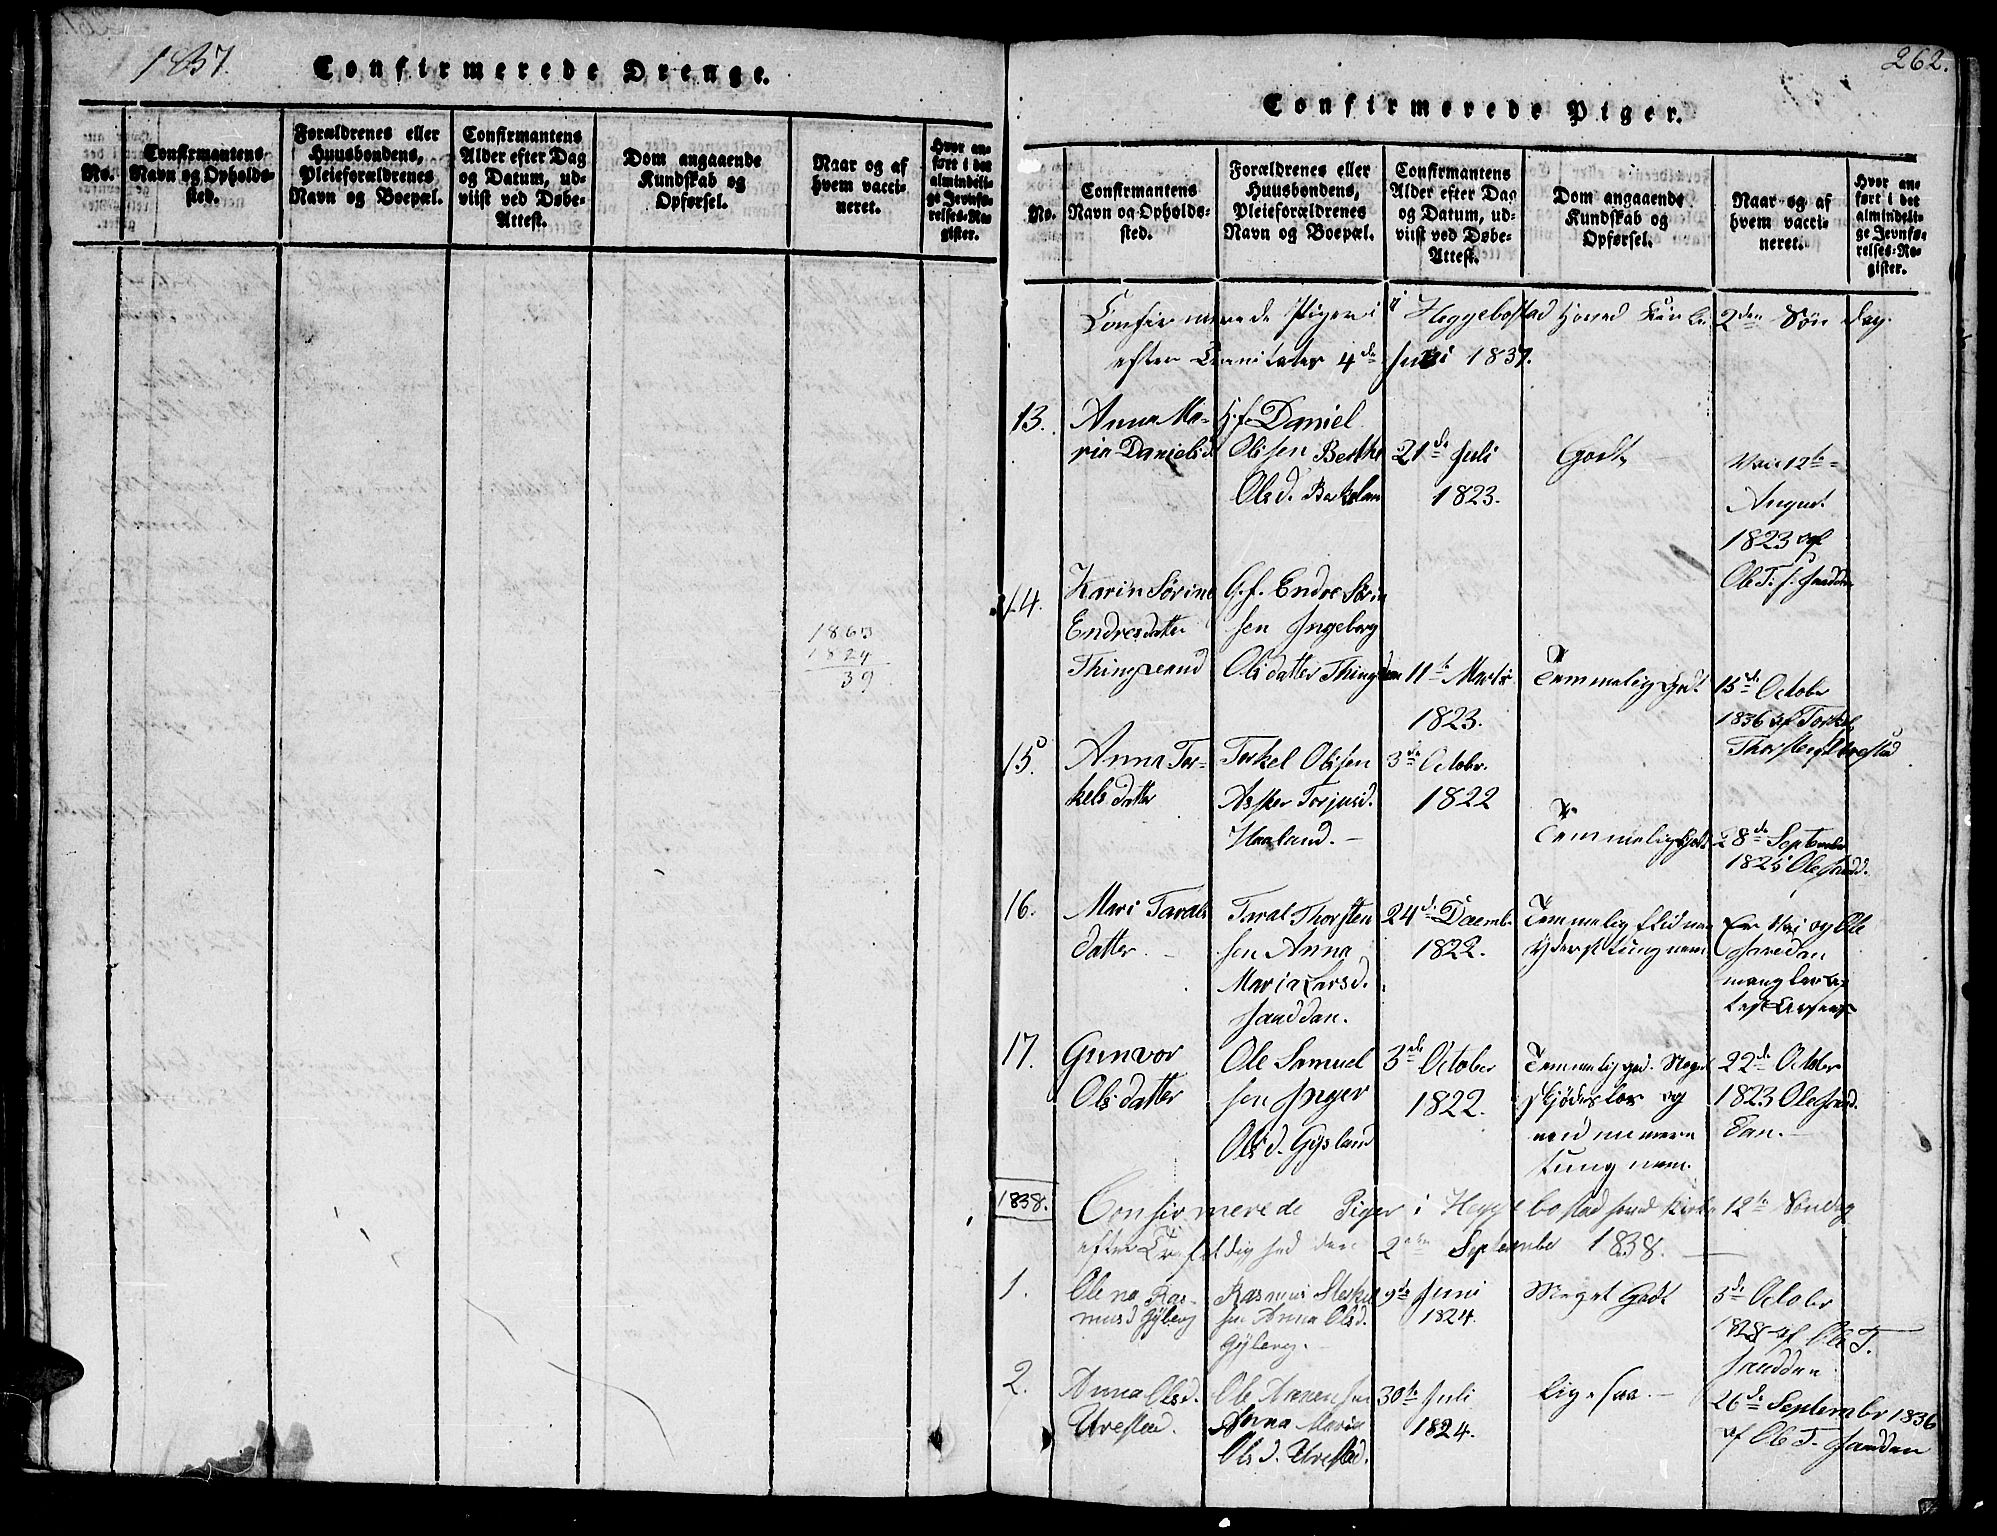 1837.
Confirmerede Drenge.
No.
Confirmantens
Navn og Opholds-
sted.
Forældrenes eller
Huusbondens,
Pleieforældrenes
Navn og Boepæl.
Confirmantens
Alder efter Dag
og Datum, ud-
viist ved Døbe-
Attest.
Dom angaaende
Kundskab og
Opførsel.
Naar og af
hvem vacci-
neret.
Hvor an-
ført i det
almindeli-
ge Jevnfø-
relses-Re-
gister.
1863
1824
39
262.
Confirmerede Piger.
No.
Confirmantens
Navn og Opholds-
sted.
Forældrenes eller
Huusbondens,
Pleieforældrenes
Navn og Boepæl.
Confirmantens
Alder efter Dag
og Datum, ud-
viist ved Døbe-
Attest.
Dom angaaende
Kundskab og
Opførsel.
Naar og af
hvem vacci-
neret.
Hvor an-
ført i det
almindeli-
ge Jevnfø-
relses-Re-
gister.
Confirmerede Piger i Heggebostad Hoved Kirke 2den Søndag
efter Trinitatis 4de Juni 1837.
13.
Anna Ma-
ria Danielsd
G.f. Daniel
Olisen Berthe
Olsd.
21de Juli
1823.
Godt
12te
August
1823 af
Ole T. S. Sanddan
14.
Karin Sørine
Endresdatter
Thingvand
G.f. Endre Sørin
sen Ingeborg
Olsdatter Thing
11te Marts
1823.
Temmelig Godt
15de October
1836 af Torkel
Thorstens Urestad
15.
Anna Tor-
kelsdatter
Torkel Olisen
Asster Torjusd.
Haaland.
3de Octobr.
1822
Temmelig Godt
28de September
1825 Ole Sandd.
16.
Mari Tarals
datter
Taral Thorsten
sen Anna
Maria Larsd.
Sanddan.
24de Decembr
1822.
Temmelig flid men
yderst tungnem
Ole
Sanddan
mangler
17.
Gunvor
Olsdatter
Ole Samuel
sen Inger
Olsd. Gysland
3de October
1822.
Temmelig god. Noget
skjødesløs og
tungnem.
22de October
1823 Ole Sand
dan.
1838.
Confirmerede Piger i Heggebostad hoved Kirke 12te Søndag
efter Trefoldighed den 2den September 1838.
1.
Olena Ras-
musd Gyberg
Rasmus
sen Anna Olsd.
Gyberg.
9de Juni
1824.
Meget Godt
3de Octobr
1828 af Ole T.
Sanddan
2.
Anna Olsd.
Urestad.
Ole Aanensen
Anna Maria
Olsd. Urestad.
30te Juli
1824.
Ligesaa.
26de Septembr 1836
af Ole T. Sanddan